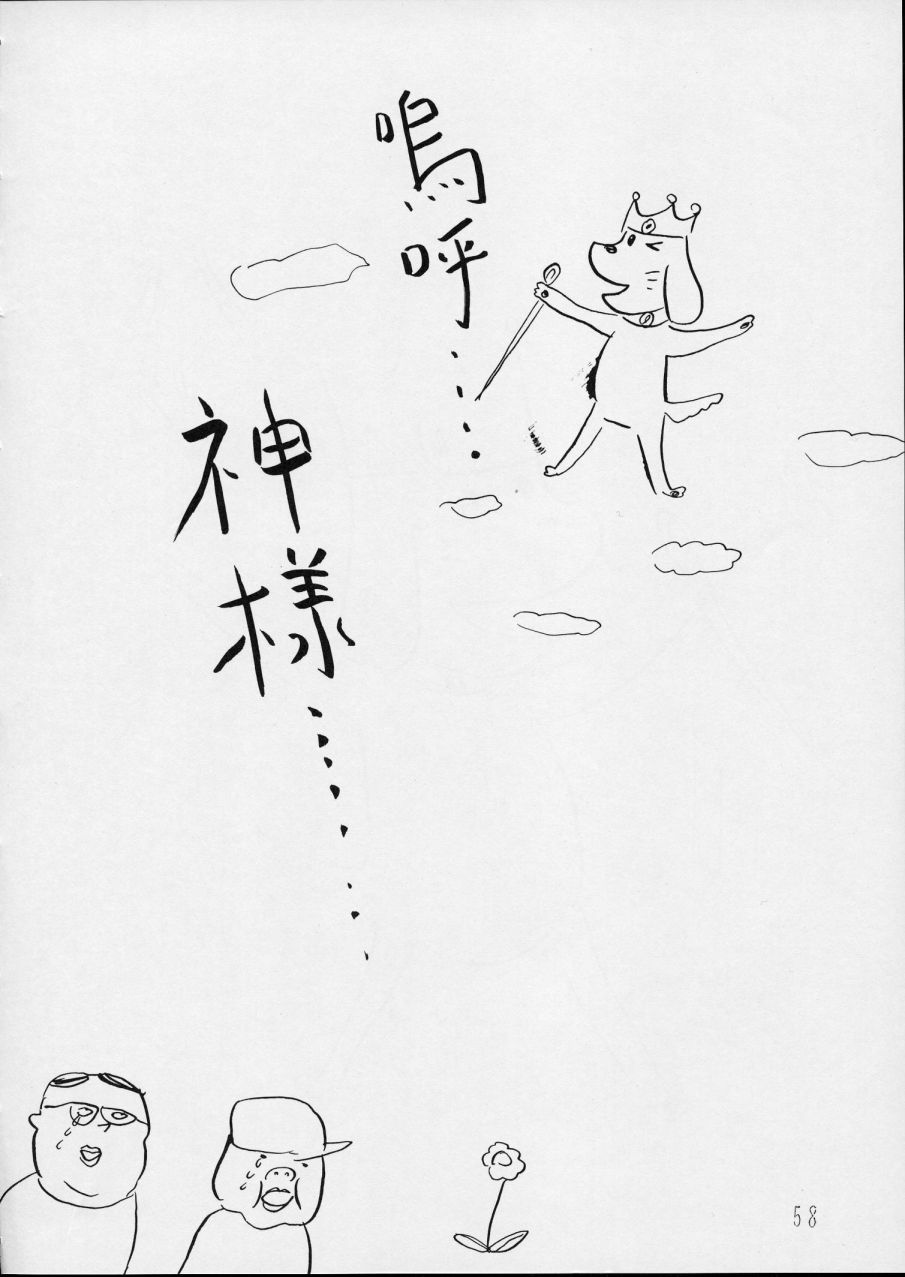 嗚呼....
神様........
58